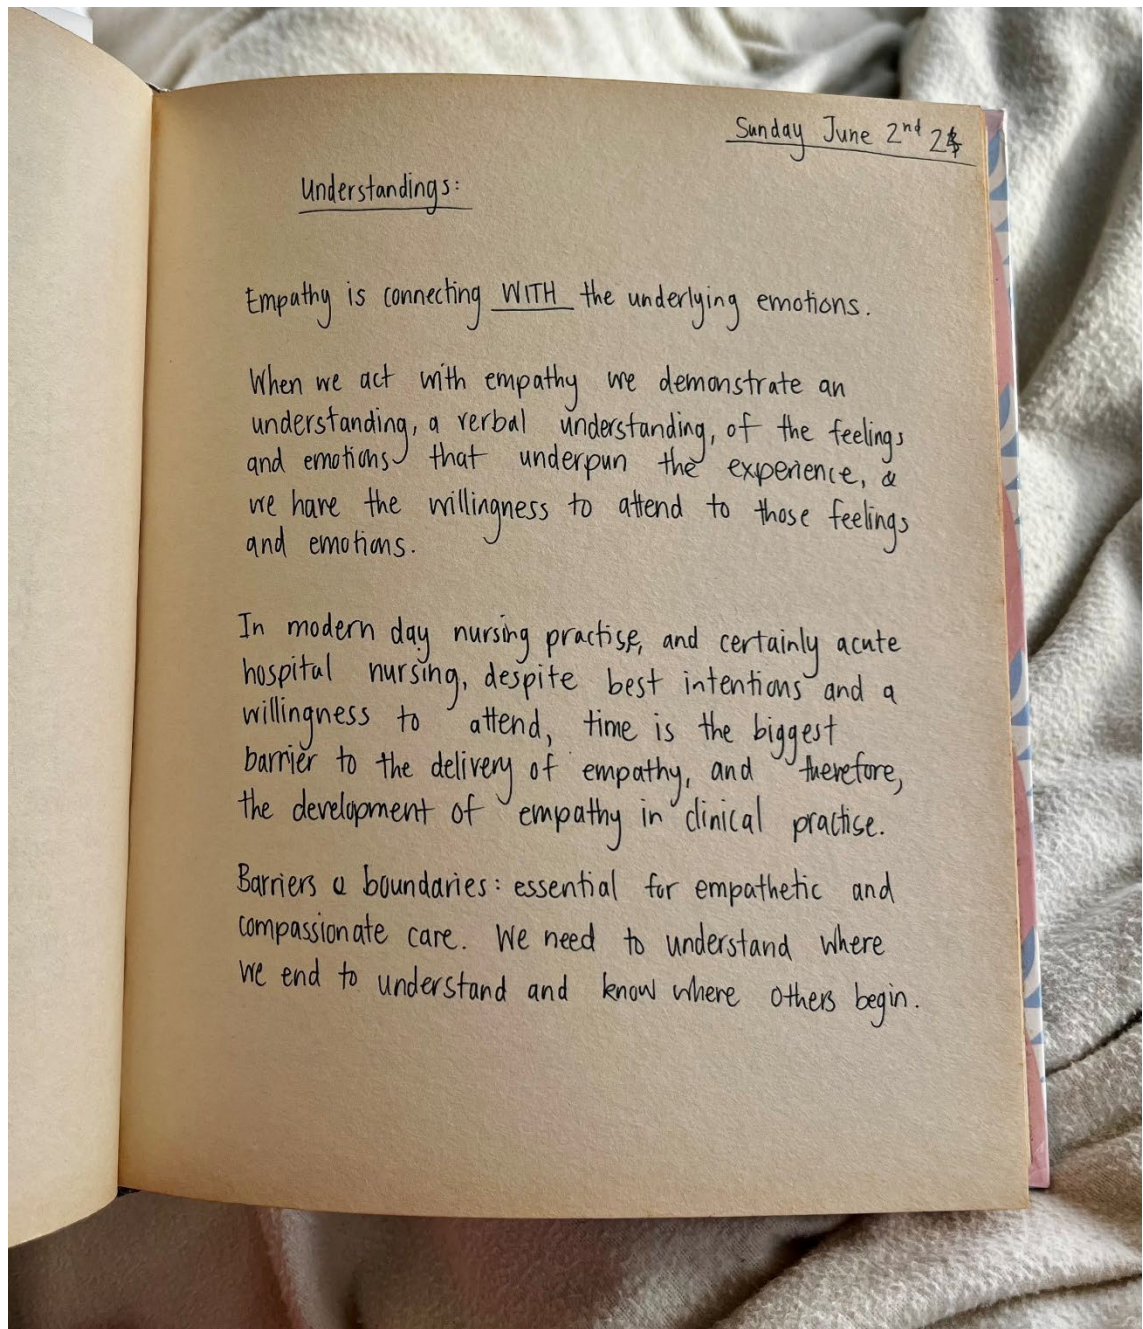 Sunday June 2nd 24
Understandings:
Empathy is connecting WITH the underlying emotions.
When we act with empathy we demonstrate an
understanding, a verbal understanding, of the feelings
and emotions that underpun the experience, &
we have the willingness to attend to those feelings
and emotions.
In modern day nursing practise, and certainly acute
hospital nursing, despite best intentions and a
willingness to attend, time is the biggest
barrier to the delivery of empathy, and therefore,
the development of empathy in clinical practise.
Barriers & boundaries: essential for empathetic and
compassionate care. We need to understand where
we end to understand and know where others begin.